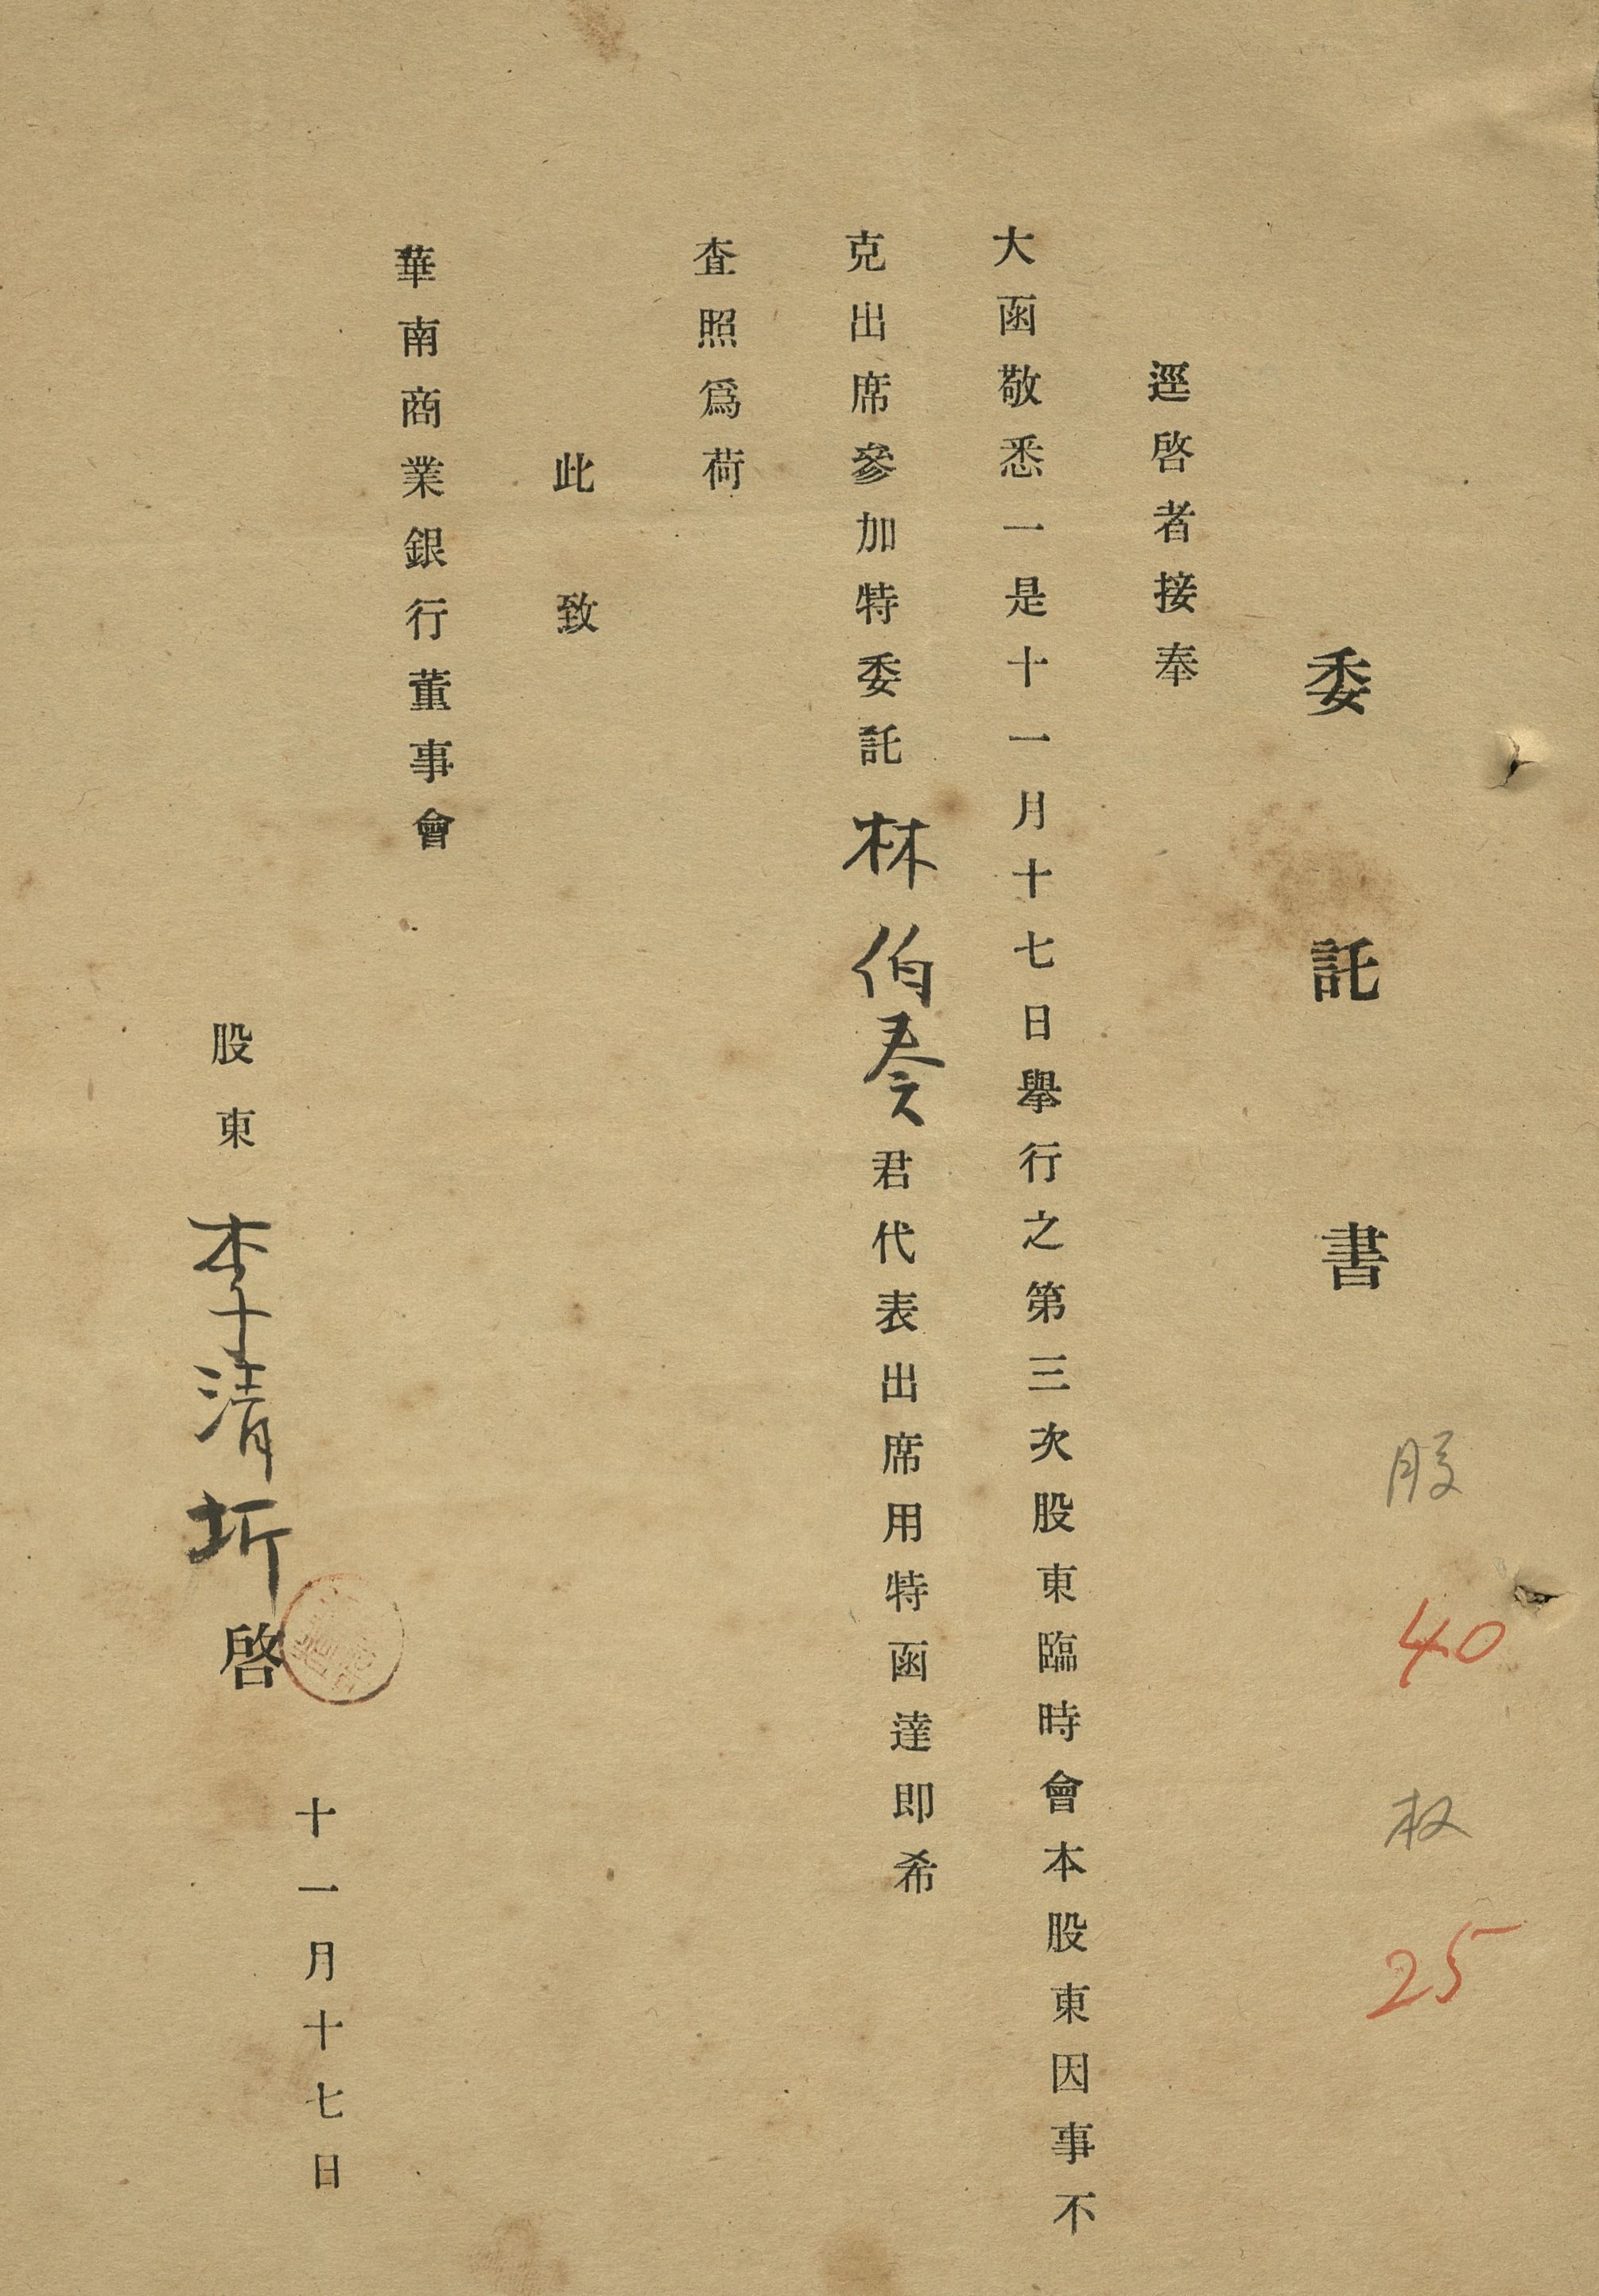 委託書
股 40 权 25
逕啓者接奉
大函敬悉一是十一月十七日舉行之第三次股東臨時會本股東因事不
克出席參加特委託林伯奏君代表出席用特函達即希
查照爲荷
此致
華南商業銀行董事會
十一月十七日
股東 李清圻 啓